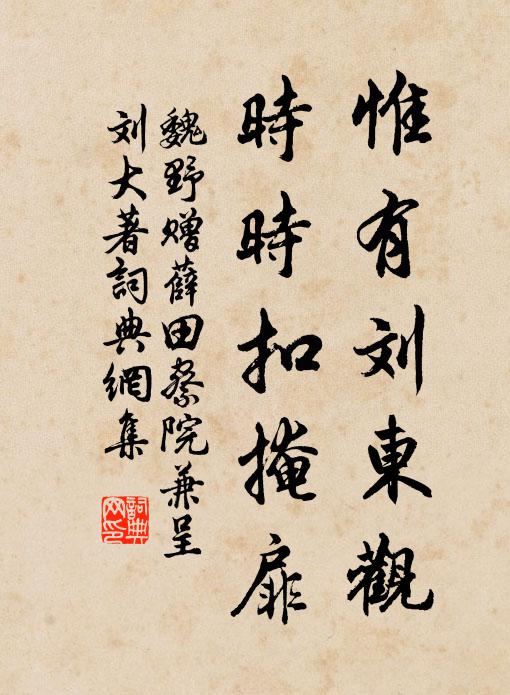 惟有刘東觀
時時扣掩扉
魏野赠薛田察院兼呈
刘大著詞典網集
詞典
网印